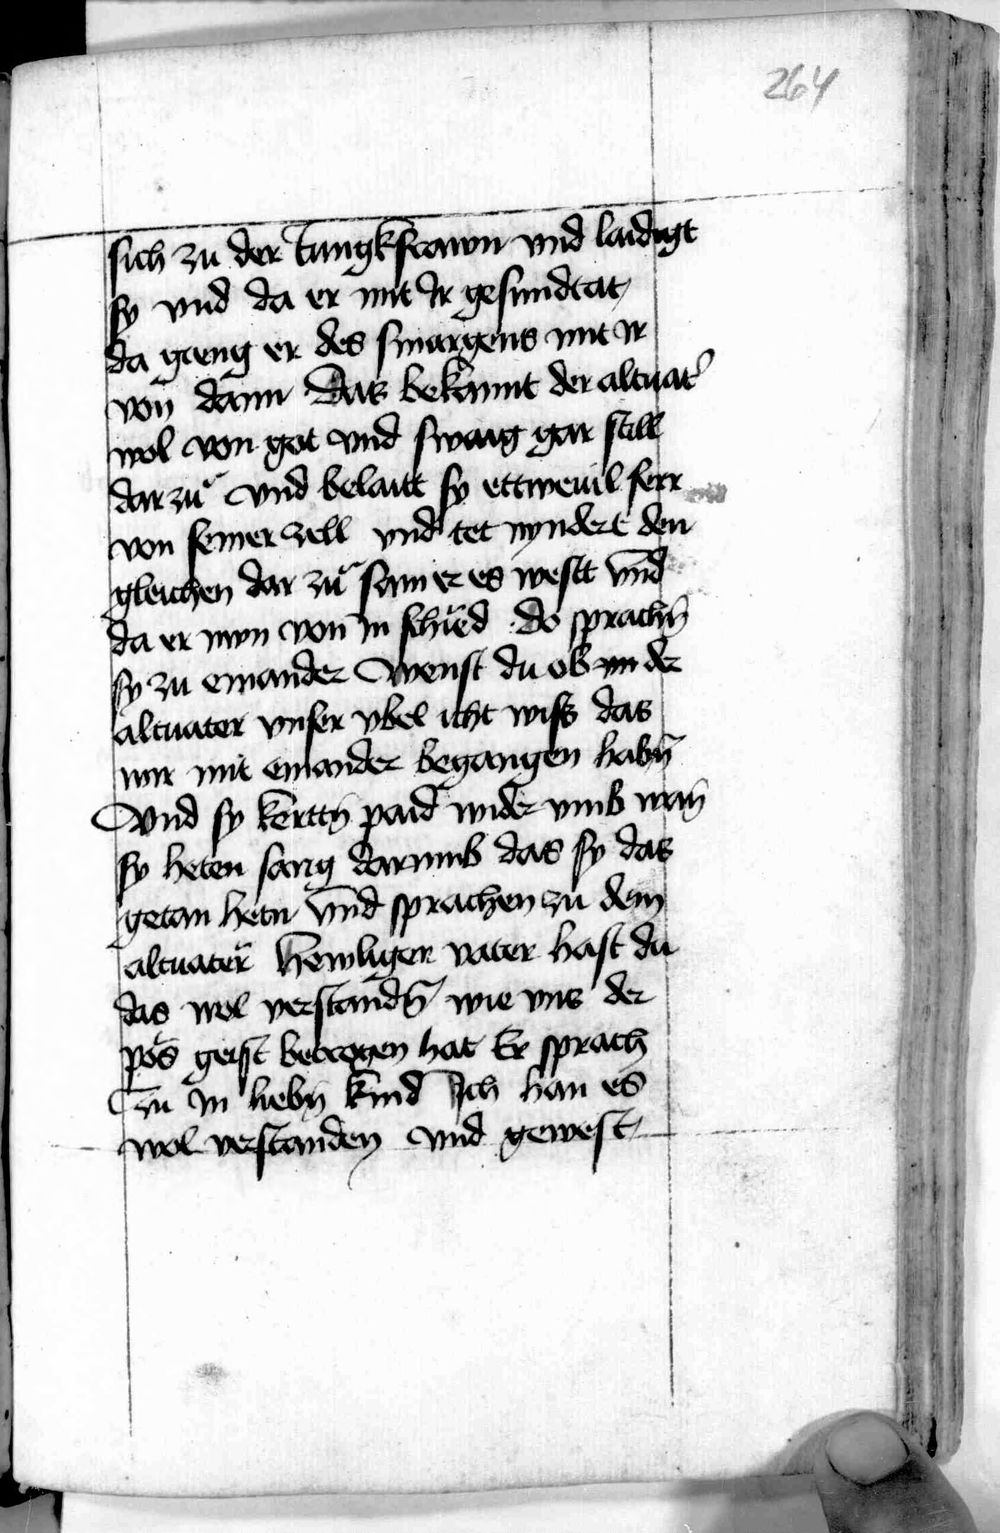 264
sich zu der Iungkfrawn vnd laidigt
sy vnd da er mit Ir gesundtat
da gieng er des smargens mit Ir
von dann Das bekannt der altuatˀ
wol von got vnd swaig gar still
dar zuͦ vnd belaitt sy ettweuil ferr
von seiner zell vnd tet nyndert den
gleichen dar zuͦ sam er es westt vnd
da er nwn von in schied do sprachn̄
sy zu einander Wenst du ob vn der
altuater vnser vbel icht wiss das
wir mit einander begangen habn̄
Vnd sy kertn̄ paid wider vmb wan̄
sy heten sarg darumb das sy das
getan hetn vnd sprachen zu dem
altuater Heiliger vater hast du
das wol verstandn̄ wie vns der
pöß geist betrogen hat Er sprach
zu in liebn̄ kind Ich han es
wol verstanden vnd gewest